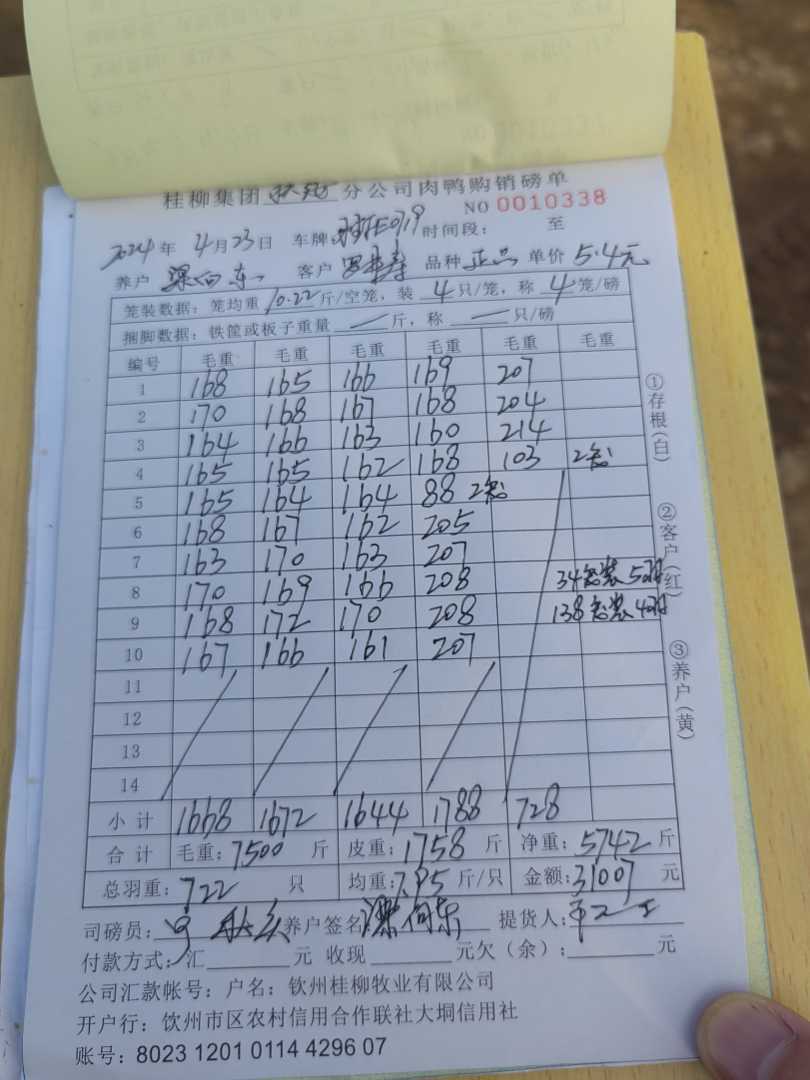 桂柳集团 分公司肉鸭购销磅单
NO 0010338
2024 年 4 月 23 日 车牌 时间段: 至
养户 梁向东 客户 品种 正品 单价 5.4元
笼装数据: 笼均重 10.22 斤/空笼, 装 4 只/笼, 称 4 笼/磅
捆脚数据: 铁筐或板子重量 斤, 称 只/磅
编号 毛重 毛重 毛重 毛重 毛重 毛重
1 168 165 166 169 207
2 170 168 167 168 204
3 164 166 163 160 214
4 165 165 162 168 103 2笼
5 165 164 164 88 2笼
6 168 167 162 205
7 163 170 163 207
8 170 169 166 208 34笼装5羽
9 168 172 170 208 138笼装4羽
10 167 166 161 207
11
12
13
14
小计 1668 1672 1644 1788 728
合计 毛重: 7500 斤 皮重: 1758 斤 净重: 5742 斤
总羽重: 722 只 均重: 7.95 斤/只 金额: 31007 元
司磅员: 养户签名 梁向东 提货人:
付款方式: 汇 元 收现 元欠(余): 元
公司汇款帐号: 户名: 钦州桂柳牧业有限公司
开户行: 饮州市区农村信用合作联社大垌信用社
账号: 8023 1201 0114 4296 07
①存根(白)
②客户(红)
③养户(黄)